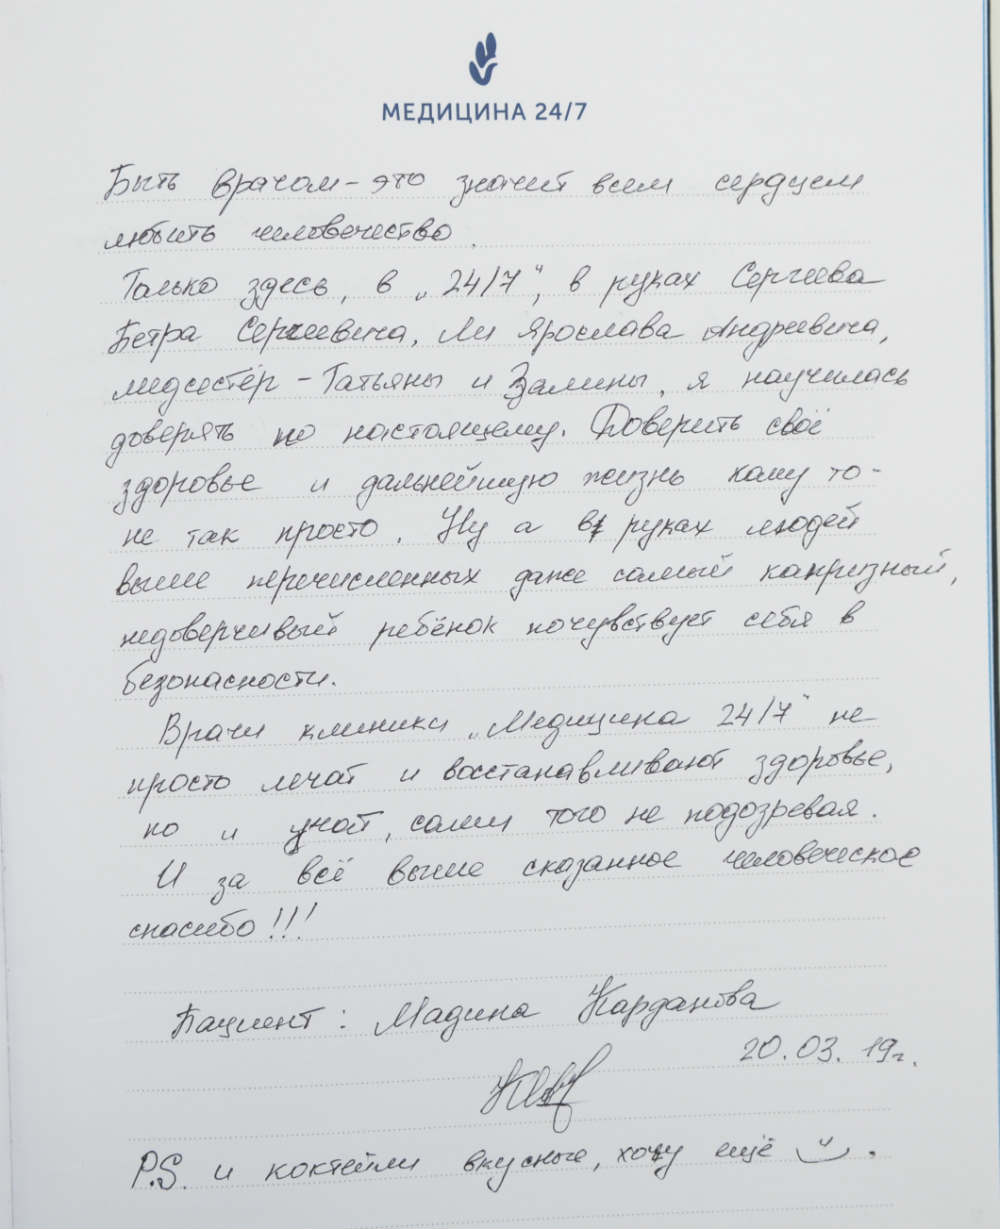 МЕДИЦИНА 24/7
Быть врачом - это значит всем сердцем
любить человечество.
Только здесь, в „24/7", в руках Сергеева
Петра Сергеевича, Ли Ярослава Андреевича,
медсестёр - Татьяны и Залины, я научилась
доверять по настоящему. Доверить своё
здоровье и дальнейшую жизнь кому то -
не так просто. Ну а в руках людей
выше перечисленных даже самый капризный,
недоверчивый ребёнок почувствует себя в
безопасности.
Врачи клиники „Медицина 24/7" не
просто лечат и восстанавливают здоровье,
но и учат, сами того не подозревая.
И за всё выше сказанное человеческое
спасибо!!!
Пациент: Мадина Карданова
20.03.19г.
P.S. и коктейли вкусные, хочу ещё .